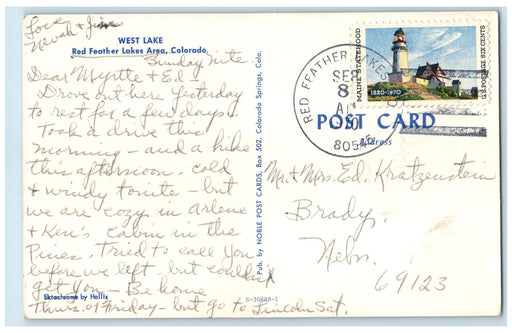 Love
Nevah + Jim
WEST LAKE
Red Feather Lakes Area, Colorado.
Sunday nite
Dear Myrtle + Ed -
Drove out here yesterday
to rest for a few days.
Took a drive this
morning - and a hike
this afternoon. cold
+ windy tonite - but
we are cozy in Arlene
+ Ken's cabin in the
Pines. Tried to call you
before we left - but couldn't
get you - Be home
Thurs. or Friday - but go to Lincoln Sat.
Ektachrome by Hollis
Pub. by NOBLE POST CARDS, Box 502, Colorado Springs, Colo.
S-30888-1
RED FEATHER LAKES
SEP
8
AM
80545
MAINE STATEHOOD
1820-1970
U.S. POSTAGE SIX CENTS
POST CARD
Address
Mr. + Mrs. Ed. Kratzenstein
Brady,
Nebr.
69123